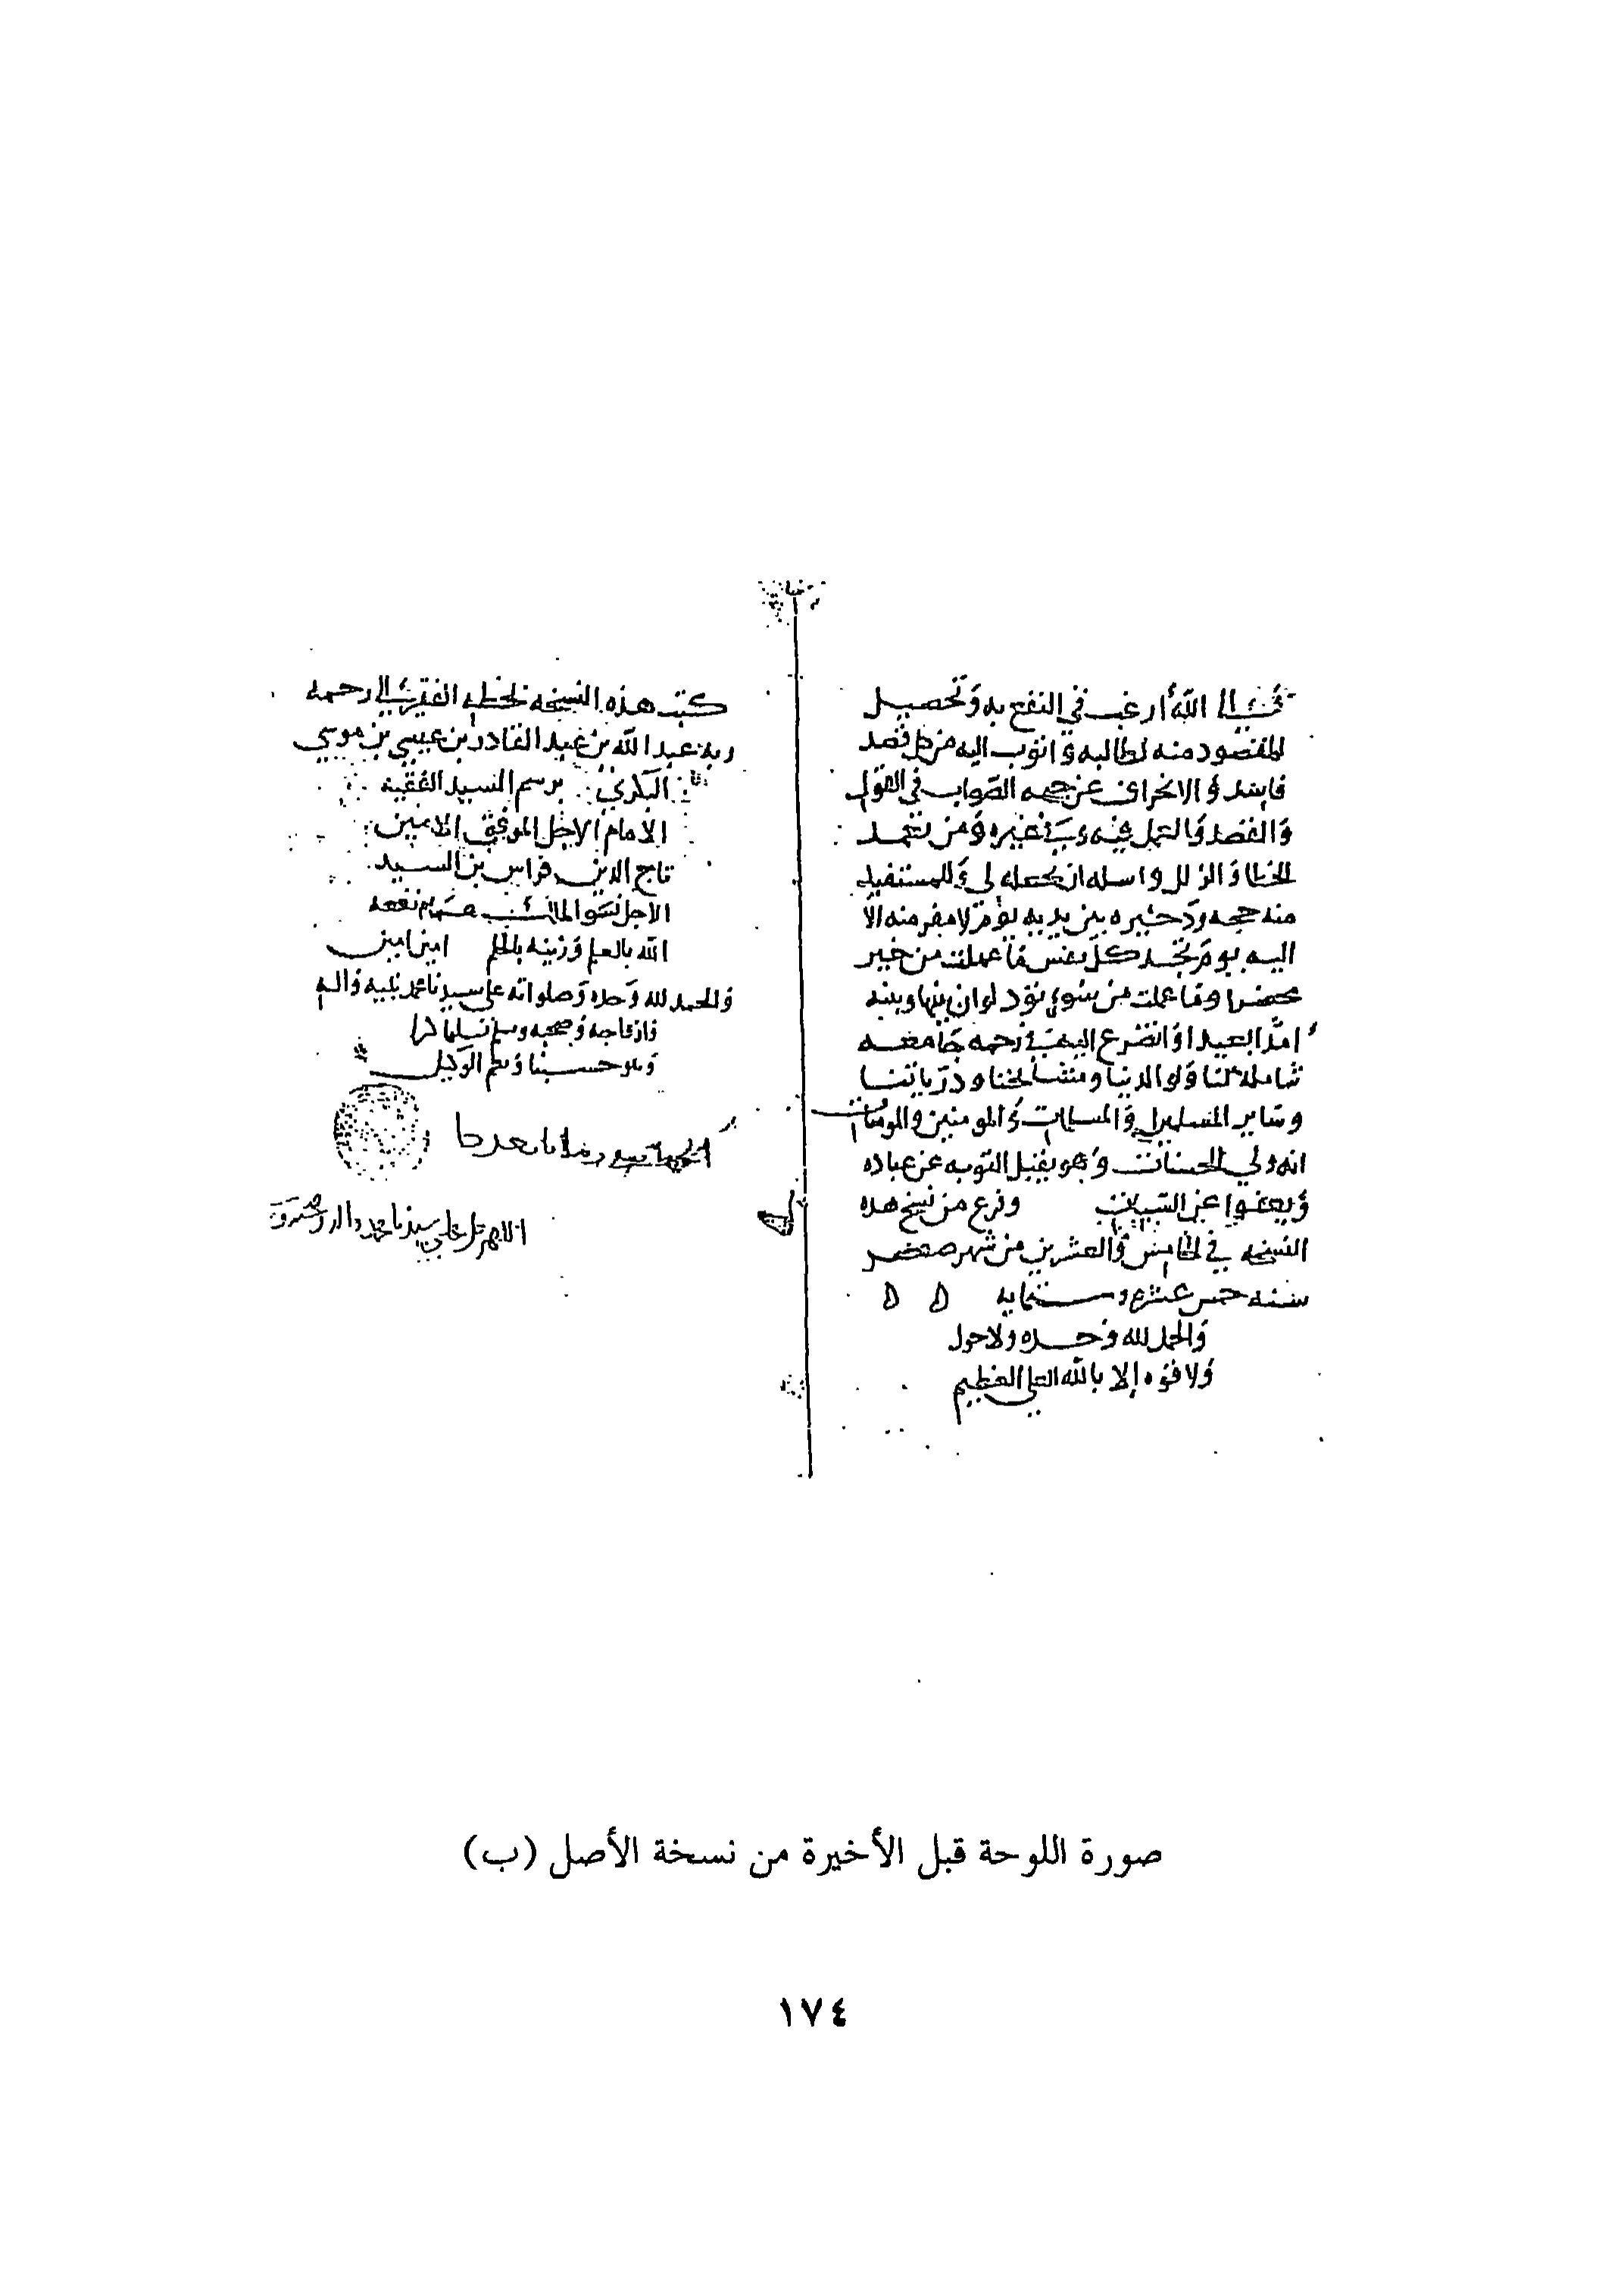 الله أرغب في النفع به وتحصيل
المقصود منه لطالبه واتوب اليه من كل قصد
فاسد والانحراف عن جهه الصواب في القول
والقصد والعمل فيه وفي غيره ومن تعمد
الخطا والزلل واسله ان يجعله لي وللمستفيد
منه حجه وذخيره بين يديه يوم لا مفر منه الا
اليه يوم تجد كل نفس ما عملت من خير
محضرا وما عملت من سوء تود لو ان بينها وبينه
امدا بعيدا واتضرع اليه في رحمه جامعه
شامله لنا ولوالدينا ومشايخنا وذرياتنا
وساير المسلمين والمسلمات والمومنين والمومنات
انه ولي الحسنات وهو يقبل التوبه عن عباده
ويعفوا عن السيات وفرغ من نسخ هده
النسخه في الخامس والعشرين من شهر صفر
سنه خمس عشره وستمايه ه ه
والحمد لله وحده ولا حول
ولا قوه إلا بالله العلي العظيم
كتب هذه النسخه لخطه الفقير الى رحمه
ربه عبد الله بن عبد القادر بن عيسي بن موسي
البكري برسم السيد الفقيه
الامام الاجل الموفق الامين
تاج الدين فراس بن السيد
الاجل نفعه
الله بالعلم وزينه بالحلم امين امين
والحمد لله وحده وصلواته على سيدنا محمد نبيه واله
وازواجه وصحبه وسلم تسليما
وهو حسبنا ونعم الوكيل
اللهم صل على سيدنا محمد واله وصحبه
صورة اللوحة قبل الأخيرة من نسخة الأصل (ب)
١٧٤